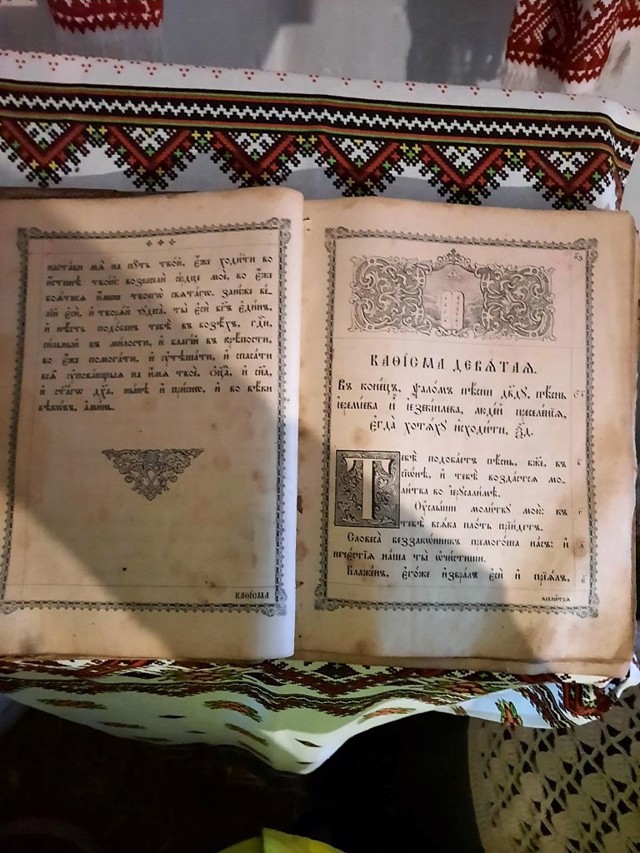 настави мѧ̀ на пꙋ́ть тво́й, є҆́же ходи́ти во
и҆́стинѣ твое́й: возвеселѝ се́рдце моѐ, во є҆́же
боѧ́тисѧ и҆́мене твоегѡ̀ свѧта́гѡ. зане́же ве́-
лїй є҆сѝ, и҆ творѧ́й чꙋдеса̀, ты̀ є҆сѝ бг҃ъ є҆ди́нъ,
и҆ нѣ́сть подо́бенъ тебѣ̀ въ бозѣ́хъ, гдⷭ҇и,
си́льный въ ми́лости, и҆ благі́й въ крѣ́пости,
во є҆́же помога́ти, и҆ ᲂу҆тѣша́ти, и҆ спаса́ти
всѧ̑ ᲂу҆пова́ющыѧ на и҆́мѧ твоѐ, ѻ҆ц҃а̀, и҆ сн҃а,
и҆ ст҃а́гѡ дх҃а, ны́нѣ и҆ при́снѡ, и҆ во вѣ́ки
вѣкѡ́въ, а҆ми́нь.
каѳі́сма
КАѲІ́СМА ДЕВѦ́ТАѦ.
Въ коне́цъ, ѱало́мъ пѣ́сни дв҃дꙋ, пѣ́снь
і҆еремі́ева и҆ і҆езекі́илева, люді́й преселе́нїѧ,
є҆гда̀ хотѧ́хꙋ и҆сходи́ти, ѯ҃д.
Тебѣ̀ подоба́етъ пѣ́снь, бж҃е, въ
сїѡ́нѣ, и҆ тебѣ̀ возда́стсѧ мо-
ли́тва во і҆ерⷭ҇али́мѣ.
Оу҆слы́ши моли́твꙋ мою̀: къ
тебѣ̀ всѧ́ка пло́ть прїи́детъ.
Словеса̀ беззако́нникъ премого́ша на́съ: и҆
нече́стїѧ на̑ша ты̀ ѡ҆чи́стиши.
Блаже́нъ, є҆го́же и҆збра́лъ є҆сѝ и҆ прїѧ́лъ,
всели́тсѧ